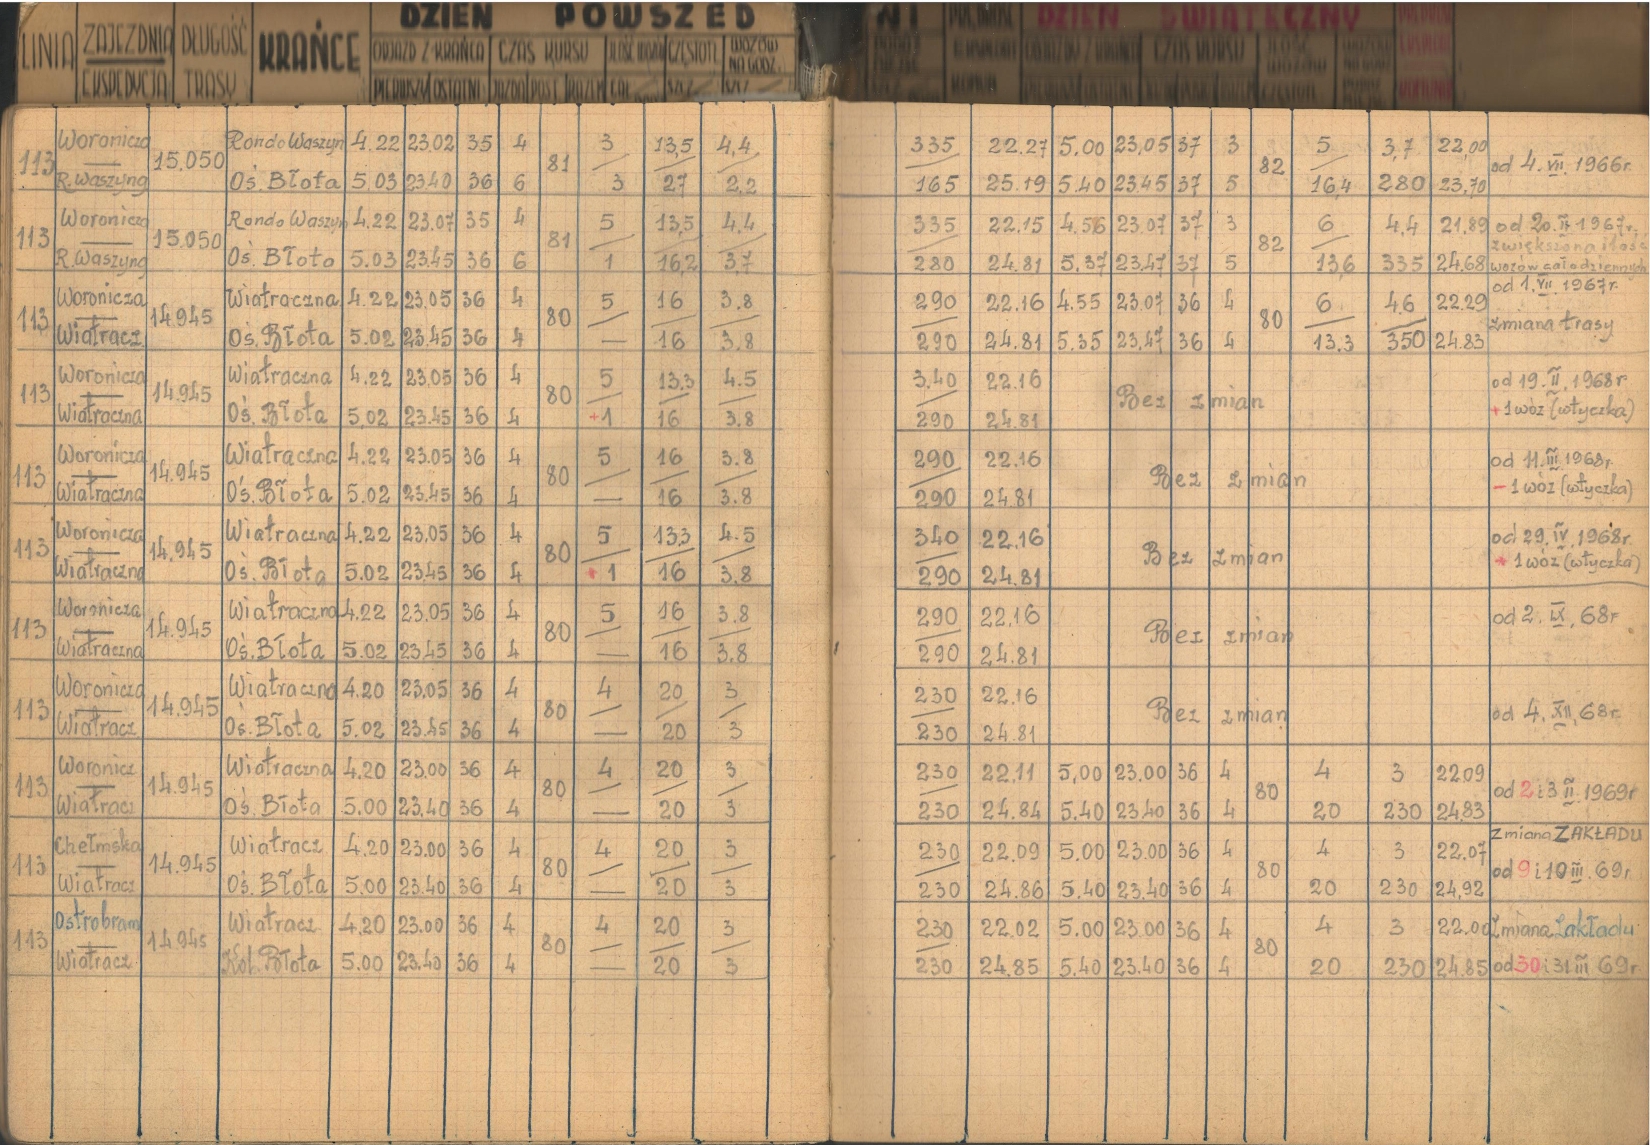 DZIEŃ POWSZED NI DZIEŃ ŚWIĄTECZNY
LINIA ZAJEZDNIA DŁUGOŚĆ KRAŃCE ODJAZD Z-KRAŃCA CZAS KURSU CZĘSTOT. WOZÓW NA GODZ.
EKSPEDYCJA TRASY PIERWSZY OSTATNI JAZDA POST. RAZEM
Woronicza Rondo Waszyn 4.22 23,02 35 4 3 13,5 4,4 335 22.27 5.00 23,05 37 3 5 3,7 22,00
113 15.050 81 82 od 4. VII. 1966r.
R.Waszyng Oś. Błota 5.03 23.40 36 6 3 27 2,2 165 25.19 5.40 23.45 37 5 16,4 280 23,70
Woronicza Rondo Waszyn 4.22 23.07 35 4 5 13,5 4.4 335 22.15 4.56 23.07 37 3 6 4,4 21.89 od 20. II 1967r.
113 15.050 81 82 zwiększona ilość
R.Waszyng Oś. Błota 5.03 23.45 36 6 1 16,2 3,7 280 24.81 5,37 23,47 37 5 13,6 335 24.68 wozów całodziennych
Woronicza Wiatraczna 4.22 23.05 36 4 5 16 3.8 290 22.16 4.55 23.07 36 4 6 4.6 22.29 od 1. VII. 1967r.
113 14.945 80 80 zmiana trasy
Wiatracz. Oś. Błota 5.02 23.45 36 4 — 16 3.8 290 24.81 5.35 23,47 36 4 13.3 350 24.83
Woronicza Wiatraczna 4.22 23.05 36 4 5 13.3 4.5 3.40 22.16 od 19. II. 1968r.
113 14.945 80 Bez zmian
Wiatraczna Oś. Błota 5.02 23.45 36 4 +1 16 3.8 290 24.81 + 1 wóz (wtyczka)
Woronicza Wiatraczna 4.22 23.05 36 4 5 16 3.8 290 22.16 od 11. III. 1968r.
113 14.945 80 Bez zmian
Wiatraczna Oś. Błota 5.02 23.45 36 4 — 16 3.8 290 24.81 - 1 wóz (wtyczka)
Woronicza Wiatraczna 4.22 23,05 36 4 5 13,3 4.5 340 22.16 od 29. IV. 1968r.
113 14.945 80 Bez zmian
Wiatraczna Oś. Błota 5.02 23.45 36 4 + 1 16 3,8 290 24.81 + 1 wóz (wtyczka)
Woronicza Wiatraczna 4.22 23.05 36 4 5 16 3.8 290 22.16 od 2. IX. 68r
113 14.945 80 Bez zmian
Wiatraczna Oś. Błota 5.02 23.45 36 4 — 16 3.8 290 24.81
Woronicza Wiatraczna 4.20 23.05 36 4 4 20 3 230 22.16
113 14.945 80 Bez zmian od 4. XII. 68r.
Wiatracz Oś. Błota 5.02 23.45 36 4 — 20 3 230 24.81
Woronicz Wiatraczna 4.20 23.00 36 4 4 20 3 230 22.11 5,00 23.00 36 4 4 3 22.09
113 14.945 80 80 od 2 i 3 II. 1969r
Wiatracz Oś. Błota 5.00 23.40 36 4 — 20 3 230 24.84 5.40 23.40 36 4 20 230 24.83
Chełmska Wiatracz 4.20 23.00 36 4 4 20 3 230 22.09 5.00 23.00 36 4 4 3 22.07 zmiana ZAKŁADU
113 14.945 80 80 od 9 i 10 III. 69r.
Wiatracz Oś. Błota 5.00 23.40 36 4 — 20 3 230 24.86 5.40 23.40 36 4 20 230 24,92
Ostrobram Wiatracz 4.20 23.00 36 4 4 20 3 230 22.02 5.00 23.00 36 4 4 3 22.00 Zmiana Zakładu
113 14.945 80 80
Wiatracz Kol. Błota 5.00 23.40 36 4 — 20 3 230 24.85 5.40 23.40 36 4 20 230 24.85 od 30 i 31 III 69r.